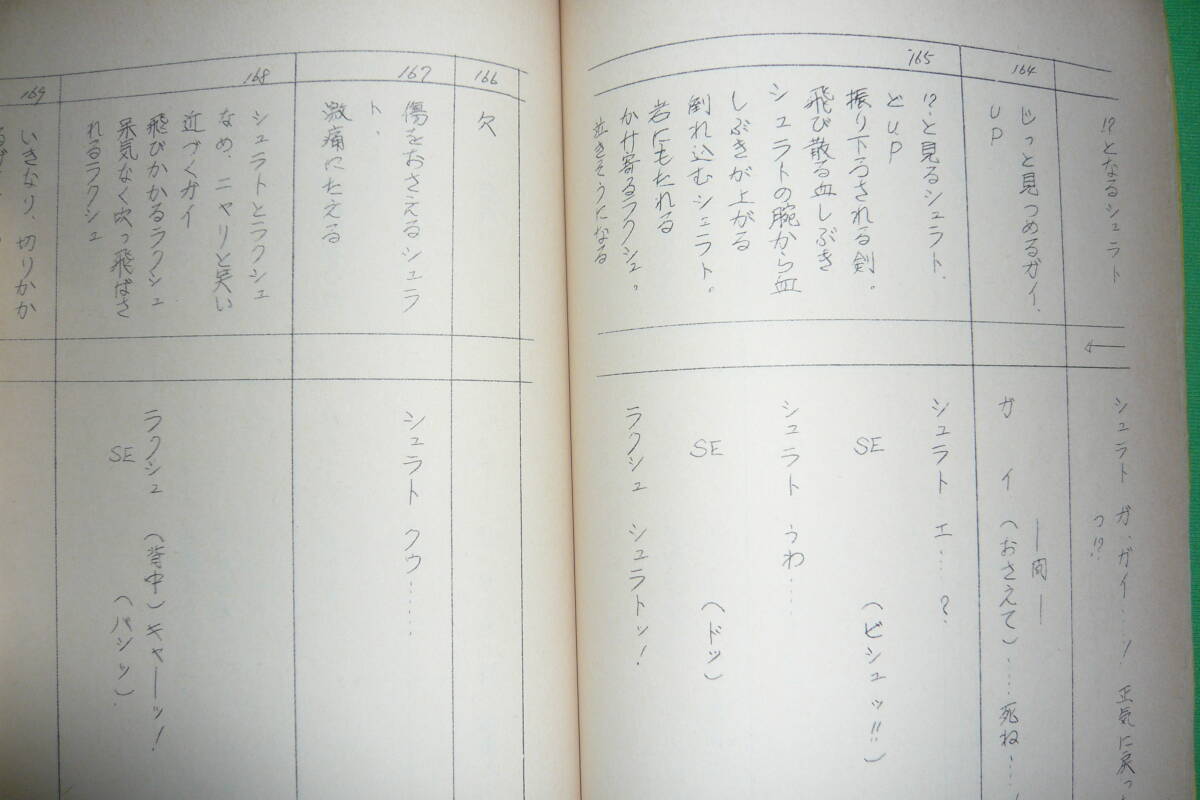 !?となるシュラト
シュラト ガ、ガイ……！ 正気に戻っ
っ!?
164
じっと見つめるガイ、
UP
―間―
ガイ（おさえて）……死ね……！
165
!?と見るシュラト、
とUP
シュラト エ……？
振り下ろされる剣。
SE（ビシュッ!!）
飛び散る血しぶき
シュラトの腕から血
しぶきが上がる
シュラト うわ……
倒れ込むシュラト。
SE（ドッ）
岩にもたれる
かけ寄るラクシュ。
ラクシュ シュラトッ！
泣きそうになる
166
欠
167
傷をおさえるシュラ
ト、
シュラト クウ……
激痛にたえる
168
シュラトとラクシュ
なめ、ニヤリと笑い
近づくガイ
飛びかかるラクシュ
ラクシュ（背中）キャーッ！
呆気なく吹っ飛ばさ
SE（バシッ）
れるラクシュ
169
いきなり、切りかか